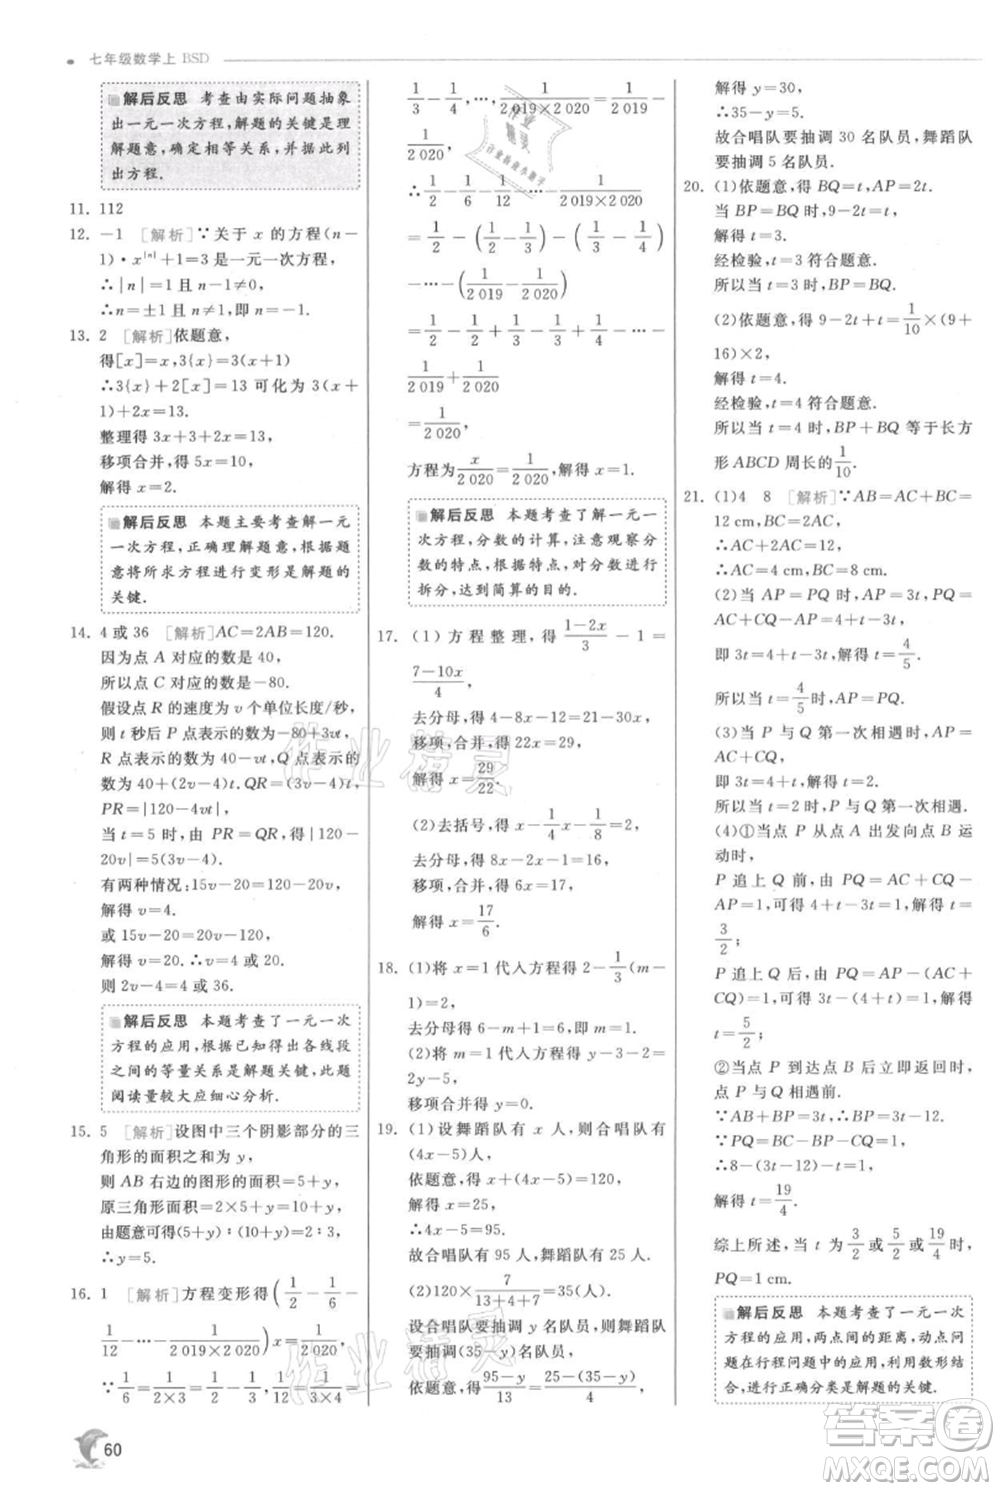 七年级数学上 BSD
解后反思 考查由实际问题抽象
出一元一次方程,解题的关键是理
解题意,确定相等关系,并据此列
出方程.
11. 112
12. -1 [解析]∵关于 x 的方程(n-
1)·x^{|n|}+1=3是一元一次方程,
∴|n|=1 且 n-1≠0,
∴n=±1 且 n≠1,即 n=-1.
13. 2 [解析]依题意,
得[x]=x,3{x}=3(x+1)
∴3{x}+2[x]=13 可化为 3(x+
1)+2x=13.
整理得 3x+3+2x=13,
移项合并,得 5x=10,
解得 x=2.
解后反思 本题主要考查解一元
一次方程,正确理解题意,根据题意
将所求方程进行变形是解题的
关键.
14. 4 或 36 [解析]AC=2AB=120.
因为点 A 对应的数是 40,
所以点 C 对应的数是-80.
假设点 R 的速度为 v 个单位长度/秒,
则 t 秒后 P 点表示的数为-80+3vt,
R 点表示的数为 40+vt,Q 点表示的
数为 40+(2v-4)t.
PR=|120-4vt|,QR=(3v-4)t.
当 t=5 时,由 PR=QR,得|120-
20v|=5(3v-4).
有两种情况:15v-20=120-20v,
解得 v=4.
或 15v-20=20v-120,
解得 v=20.∴v=4 或 20.
则 2v-4=4 或 36.
解后反思 本题考查了一元一次
方程的应用,根据已知得出各线段
之间的等量关系是解题关键,此题
阅读量较大应细心分析.
15. 5 [解析]设图中三个阴影部分的三
角形的面积之和为 y,
则 AB 右边的图形的面积=5+y,
原三角形面积=2×5+y=10+y.
由题意可得(5+y):(10+y)=2:3.
∴y=5.
16. 1 [解析]方程变形得(1/2-1/6-
1/12-…-1/(2 019×2 020))x=1/2 020.
∵1/6=1/(2×3)=1/2-1/3,1/12=1/(3×4)=
1/3-1/4,…,1/(2 019×2 020)=1/2 019-
1/2 020,
∴1/2-1/6-1/12-…-1/(2 019×2 020)
=1/2-(1/2-1/3)-(1/3-1/4)
-…-(1/2 019-1/2 020)
=1/2-1/2+1/3-1/3+1/4-…-
1/2 019+1/2 020
=1/2 020.
方程为x/2 020=1/2 020,解得 x=1.
解后反思 本题考查了解一元一
次方程,分数的计算,注意观察分
数的特点,根据特点,对分数进行
拆分,达到简算的目的.
17. (1) 方程整理,得(1-2x)/3-1=
(7-10x)/4,
去分母,得 4-8x-12=21-30x,
移项,合并,得 22x=29,
解得 x=29/22.
(2)去括号,得 x-1/4x-1/8=2,
去分母,得 8x-2x-1=16,
移项,合并,得 6x=17,
解得 x=17/6.
18. (1)将 x=1 代入方程得 2-1/3(m-
1)=2,
去分母得 6-m+1=6,解得 m=1.
(2)将 m=1 代入方程得 y-3-2=
2y-5,
移项合并,得 y=0.
19. (1)设舞蹈队有 x 人,则合唱队有
(4x-5)人,
依题意,得 x+4x-5=120,
解得 x=25,
∴4x-5=95.
故合唱队有 95 人,舞蹈队有 25 人.
(2)120×7/(13+4+7)=35(人).
设合唱队要抽调 y 名队员,则舞蹈队
要抽调(35-y)名队员,
依题意,得(95-y)/13=(25-(35-y))/4,
解得 y=30,
∴35-y=5.
故合唱队要抽调 30 名队员,舞蹈队
要抽调 5 名队员.
20. (1)依题意,得 BQ=t,AP=2t.
当 BP=BQ 时,9-2t=t,
解得 t=3.
经检验,t=3 符合题意.
所以当 t=3 时,BP=BQ.
(2)依题意,得 9-2t+t=1/10×(9+
16)×2,
解得 t=4.
经检验,t=4 符合题意.
所以当 t=4 时,BP+BQ 等于长方
形 ABCD 周长的1/10.
21. (1)4 8 [解析]∵AB=AC+BC=
12 cm,BC=2AC,
∴AC+2AC=12,
∴AC=4 cm,BC=8 cm.
(2)当 AP=PQ 时,AP=3t,PQ=
AC+CQ-AP=4+t-3t,
即 3t=4+t-3t,解得 t=4/5.
所以当 t=4/5时,AP=PQ.
(3)当 P 与 Q 第一次相遇时,AP=
AC+CQ,
即 3t=4+t,解得 t=2.
所以当 t=2 时,P 与 Q 第一次相遇.
(4)①当点 P 从点 A 出发向点 B 运
动时,
P 追上 Q 前,则有 AC+CQ-AP=
PQ=1,可得 4+t-3t=1,解得 t=
3/2;
P 追上 Q 后,则有 AP-(AC+
CQ)=1,可得 3t-(4+t)=1,解得
t=5/2;
②当点 P 到达点 B 立即返回时,
点 P 与 Q 相遇前.
∵AB+BP=3t,∴BP=3t-12.
∵PQ=BC-BP-CQ=1,
∴8-(3t-12)-t=1,
解得 t=19/4.
综上所述,当 t 为3/2或5/2或19/4时,
PQ=1 cm.
解后反思 本题考查了一元一次
方程的应用,两点间的距离,动点问
题在行程问题中的应用,利用数形结
合,并正确分类是解题的关键.
60
作业精灵
作业精灵
作业
精灵
答案圈
MXQE.COM